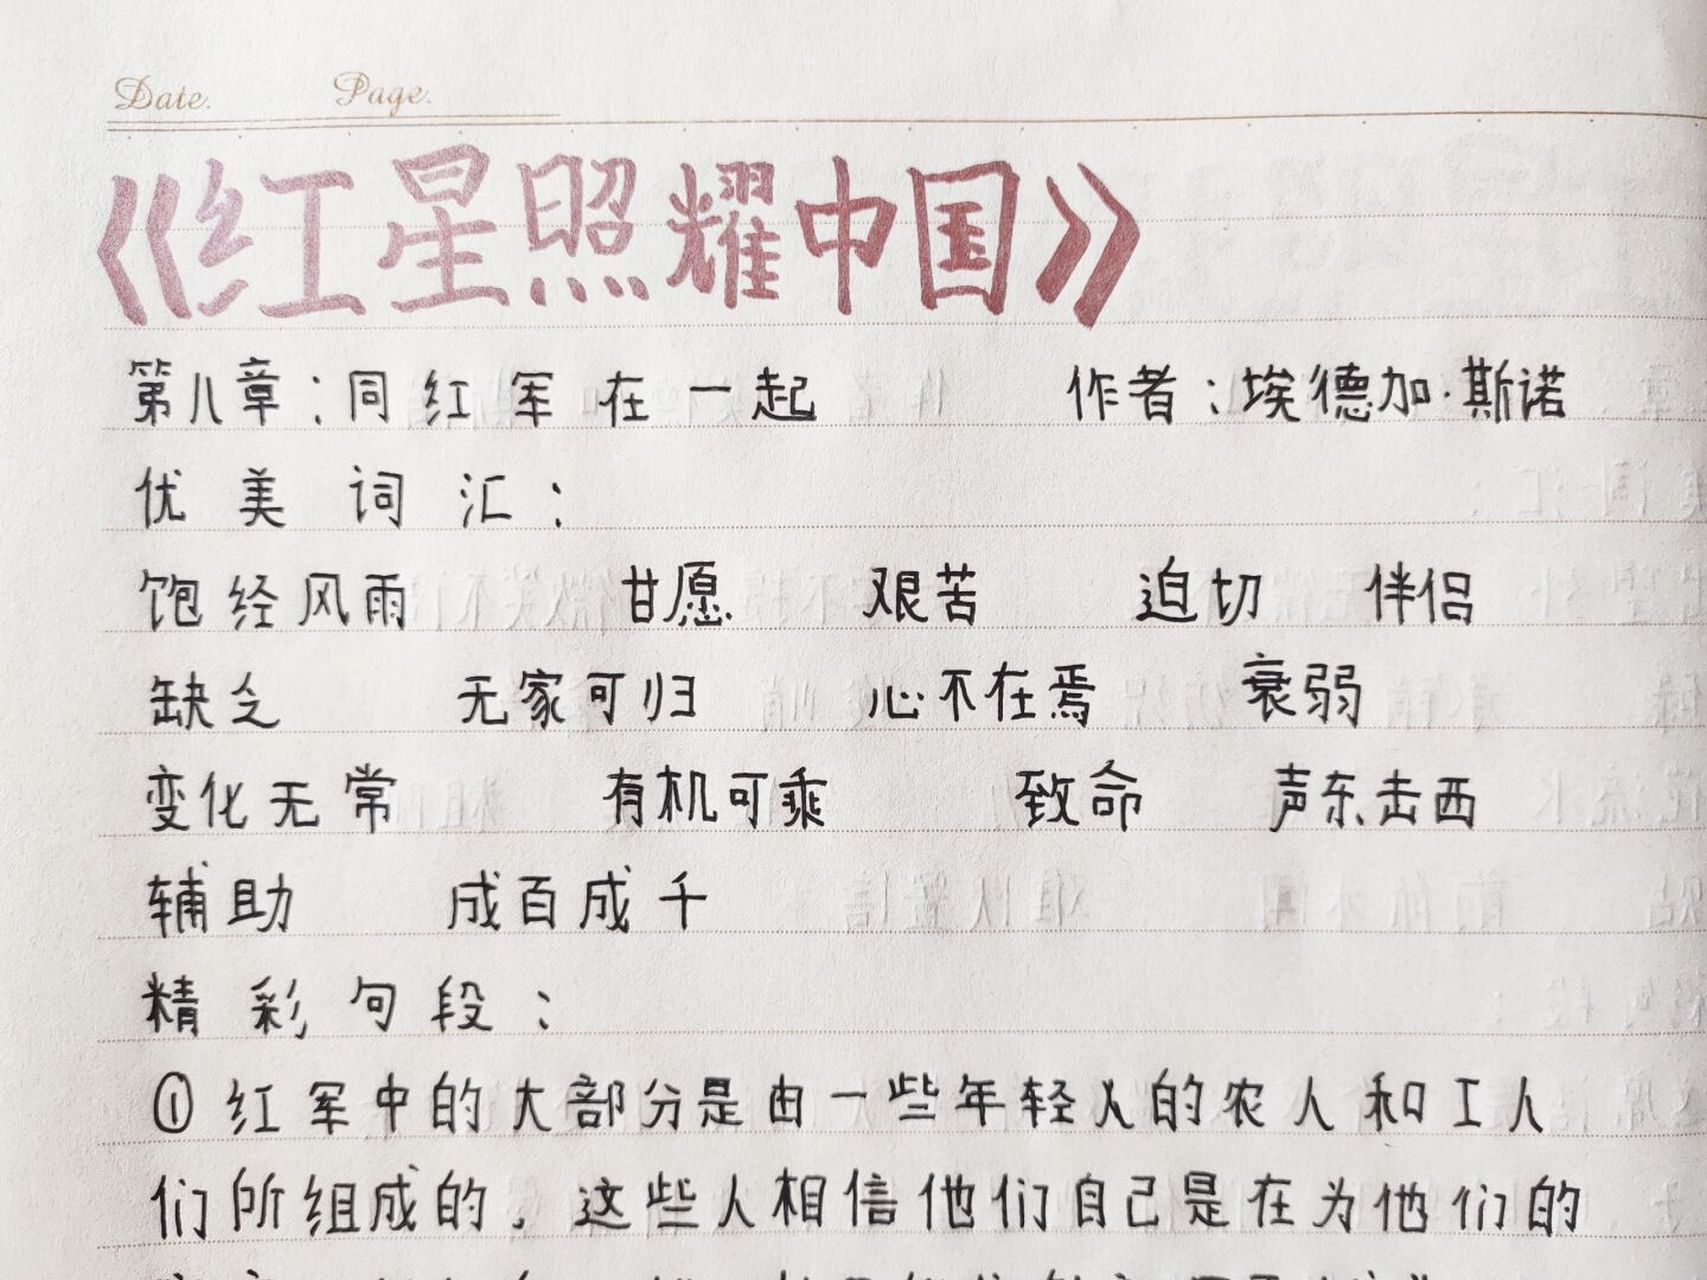 Date. Page.
《红星照耀中国》
第八章：同红军在一起 作者：埃德加·斯诺
优美词汇：
饱经风雨 甘愿 艰苦 迫切 伴侣
缺乏 无家可归 心不在焉 衰弱
变化无常 有机可乘 致命 声东击西
辅助 成百成千
精彩句段：
①红军中的大部分是由一些年轻人的农人和工人
们所组成的，这些人相信他们自己是在为他们的